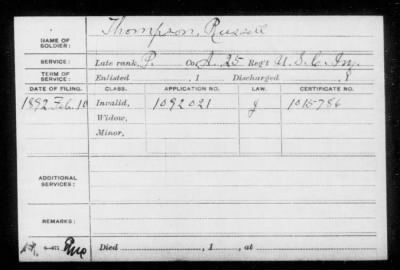 NAME OF SOLDIER: Thompson, Russell
SERVICE: Late rank, P. Co. A. 25 Reg't U. S. C. Inf.
TERM OF SERVICE: Enlisted , 1 Discharged , 1
DATE OF FILING. CLASS. APPLICATION NO. LAW. CERTIFICATE NO.
1892 Feb. 10 Invalid, 1092021 g 1015786
Widow,
Minor,
ADDITIONAL SERVICES:
REMARKS:
Died , 1 , at